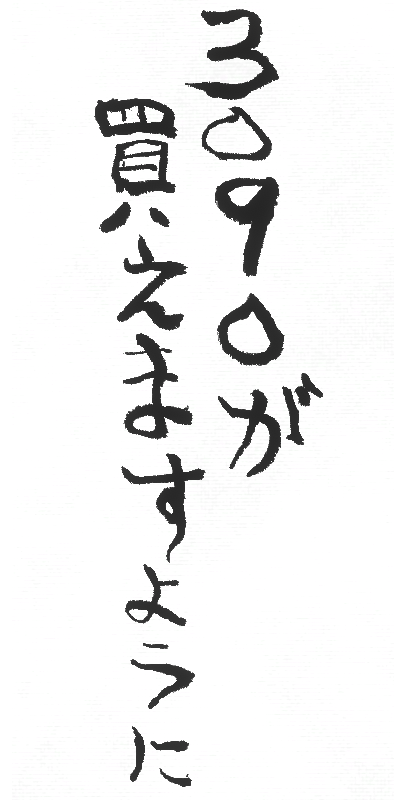 3090が
買えますように